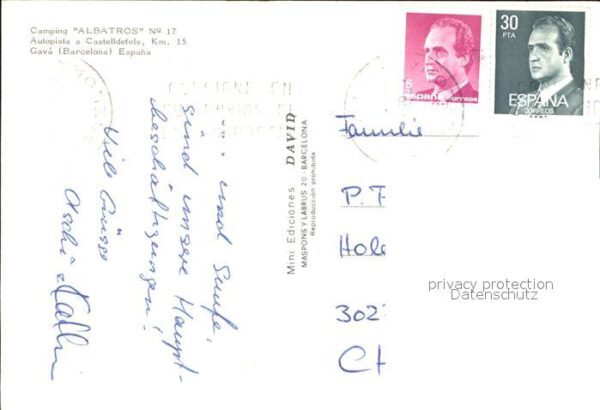 Camping "ALBATROS" Nº 17
Autopista a Castelldefels, Km. 15
Gavá (Barcelona) España
... und Surfe,
sind unsere Haupt-
beschäftigungen!
Viele Grüsse
Mini Ediciones DAVID
MASPONS Y LABRUS 20 - BARCELONA
Reproducción prohibida
5
España
correos
30
PTA
ESPAÑA
CORREOS
Familie
P. F
Hole
302
CH
privacy protection
Datenschutz